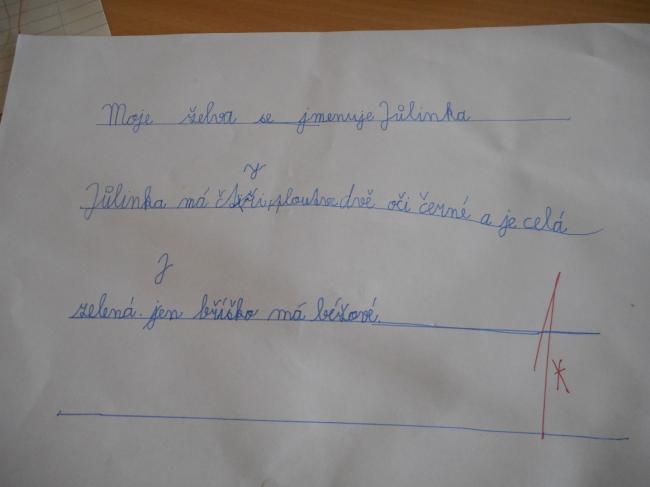 Moje želva se jmenuje Jůlinka
y
Jůlinka má čtiři ploutve dvě oči černé a je celá
J
zelená. jen bříško má béžové.
1*